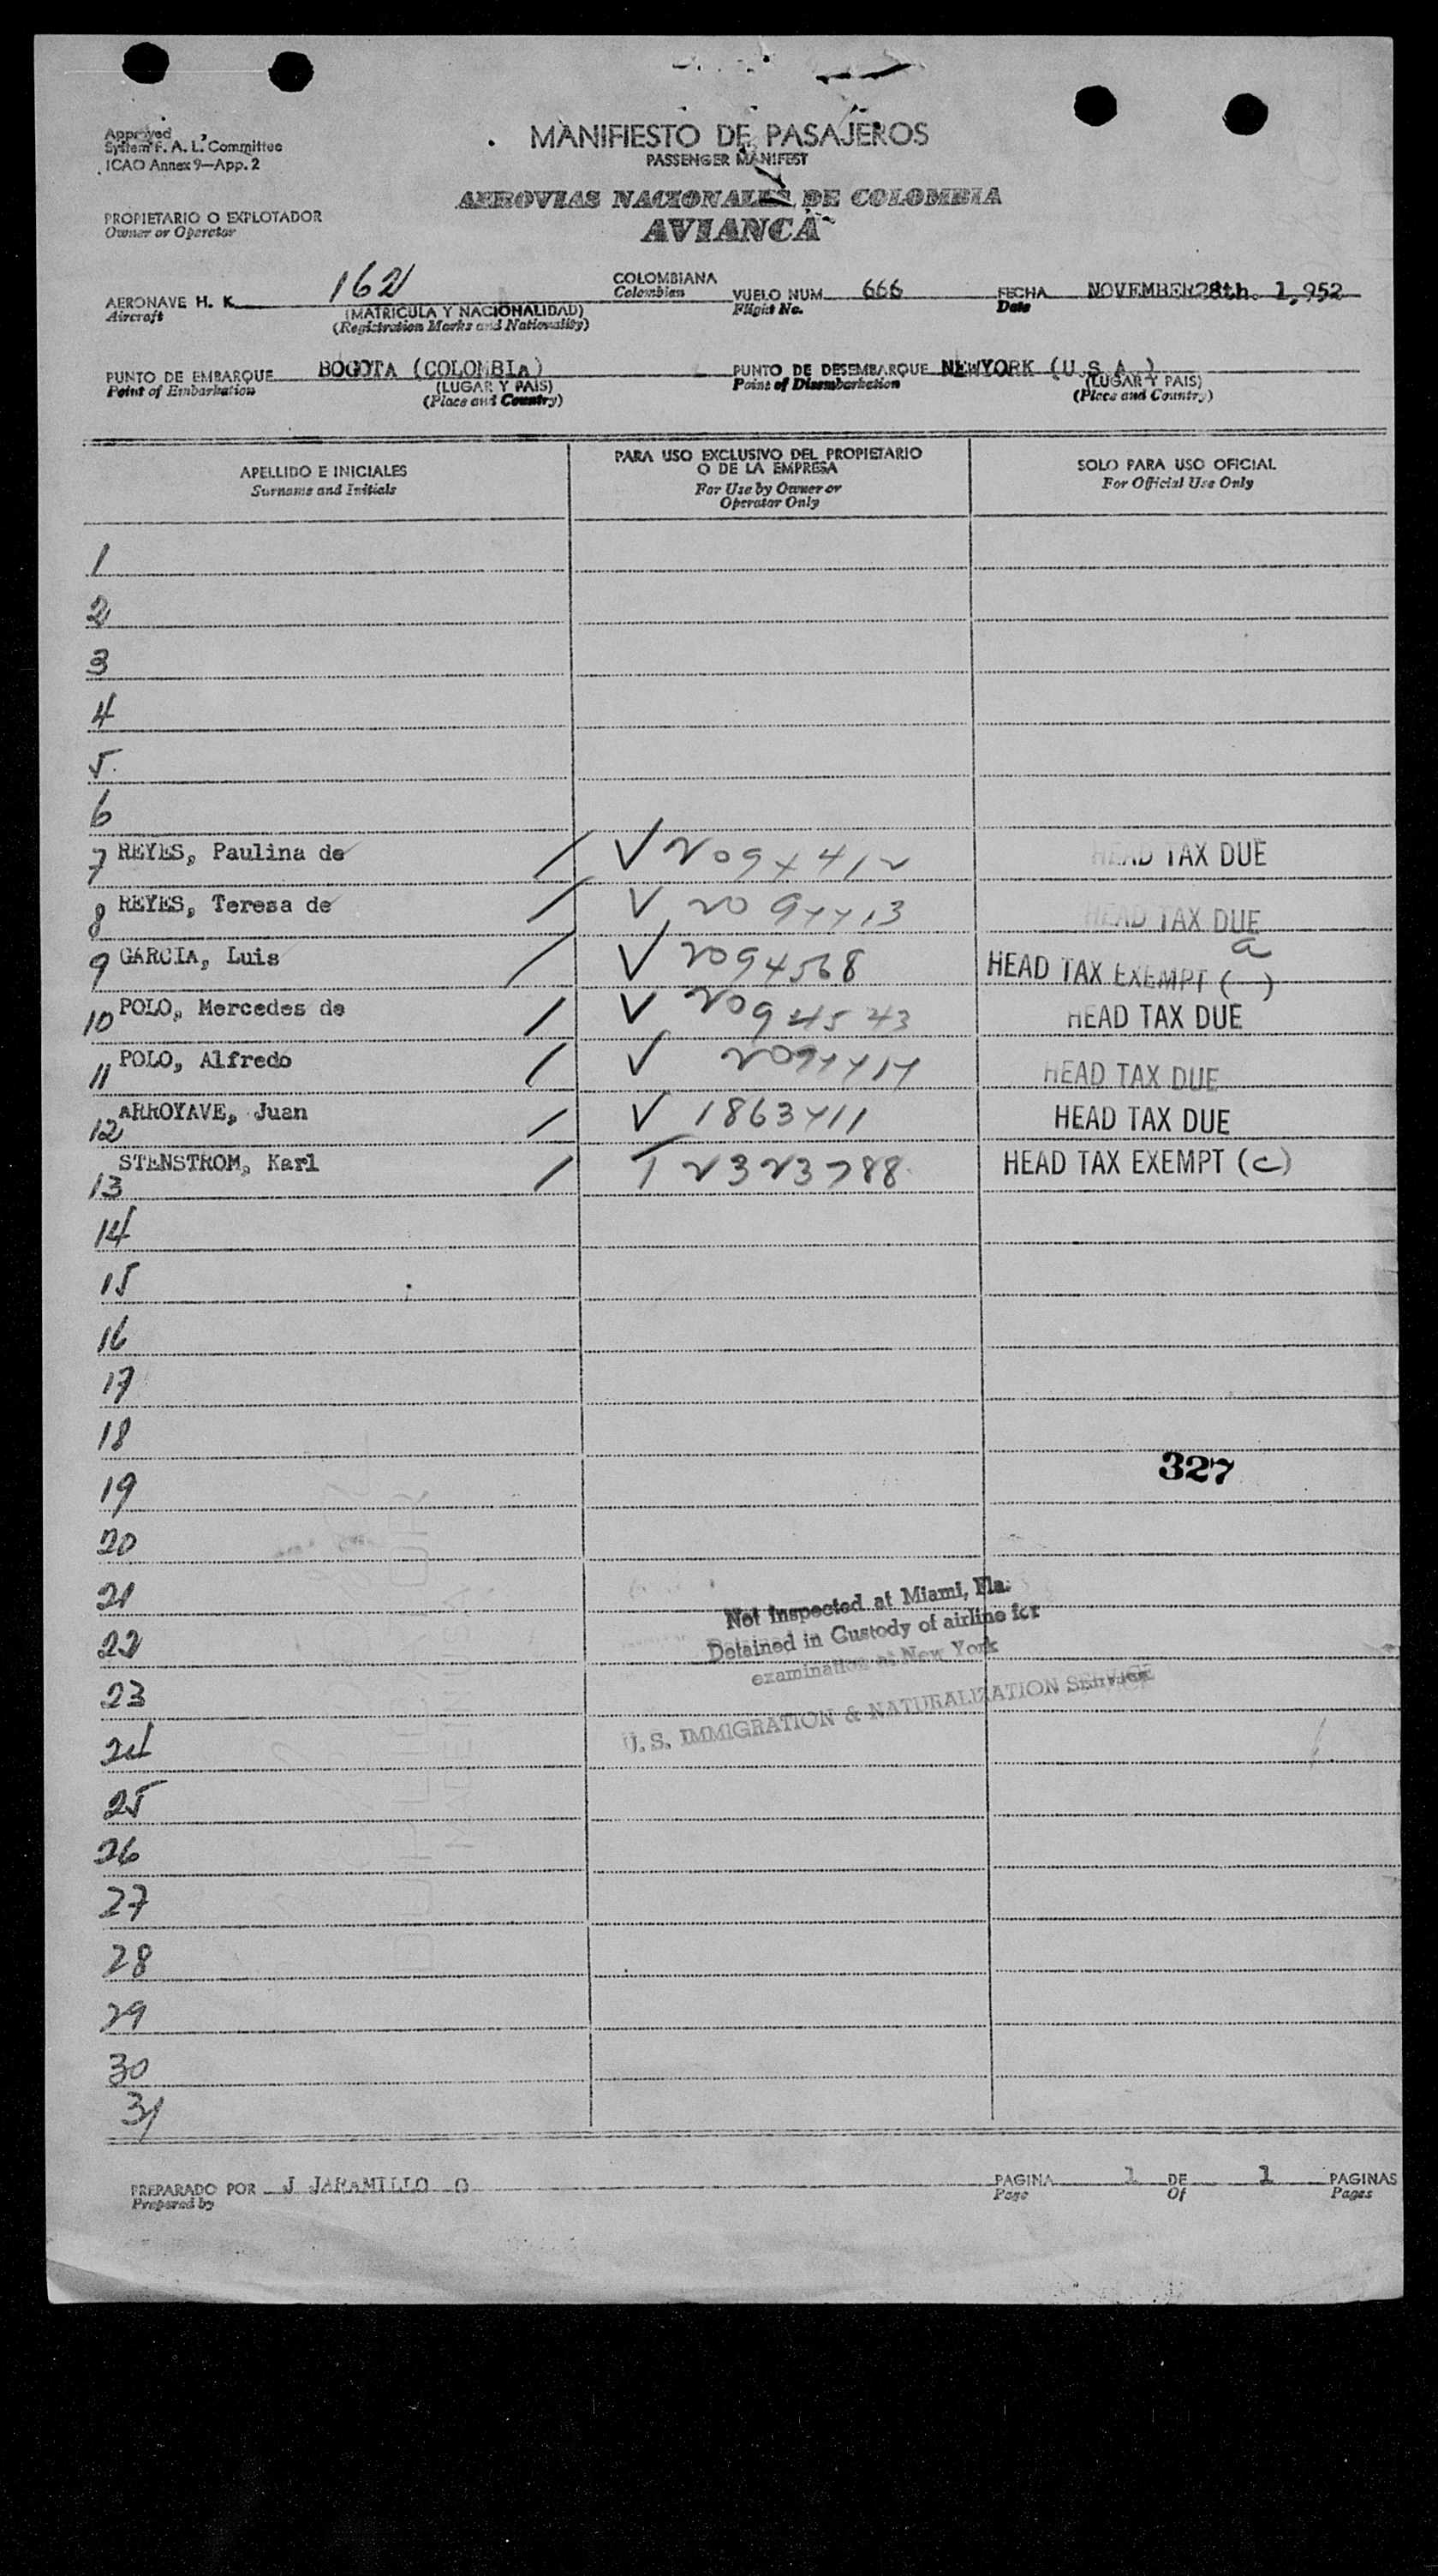 Approved
System F. A. L. Committee
ICAO Annex 9—App. 2
MANIFIESTO DE PASAJEROS
PASSENGER MANIFEST
AEROVIAS NACIONALES DE COLOMBIA
AVIANCA
PROPIETARIO O EXPLOTADOR
Owner or Operator
AERONAVE H. K. 162 COLOMBIANA VUELO NUM. 666 FECHA NOVEMBER28th. 1,952
Aircraft (MATRICULA Y NACIONALIDAD) Colombian Flight No. Date
(Registration Marks and Nationality)
PUNTO DE EMBARQUE BOGOTA (COLOMBIA) PUNTO DE DESEMBARQUE NEWYORK (U.S.A.)
Point of Embarkation (LUGAR Y PAIS) Point of Disembarkation (LUGAR Y PAIS)
(Place and Country) (Place and Country)
APELLIDO E INICIALES
Surname and Initials
PARA USO EXCLUSIVO DEL PROPIETARIO
O DE LA EMPRESA
For Use by Owner or
Operator Only
SOLO PARA USO OFICIAL
For Official Use Only
1
2
3
4
5
6
7 REYES, Paulina de / √ 2094412 HEAD TAX DUE
8 REYES, Teresa de / √ 2094413 HEAD TAX DUE
9 GARCIA, Luis / √ 2094568 HEAD TAX EXEMPT (a)
10 POLO, Mercedes de / √ 2094543 HEAD TAX DUE
11 POLO, Alfredo / √ 2094414 HEAD TAX DUE
12 ARROYAVE, Juan / √ 1863411 HEAD TAX DUE
13 STENSTROM, Karl / T 2323788 HEAD TAX EXEMPT (c)
14
15
16
17
18
327
19
20
21
22
23
24
25
26
27
28
29
30
31
Not Inspected at Miami, Fla.
Detained in Custody of airline for
examination at New York
U.S. IMMIGRATION & NATURALIZATION SERVICE
PREPARADO POR J JARAMILLO O PAGINA 1 DE 1 PAGINAS
Prepared by Page Of Pages